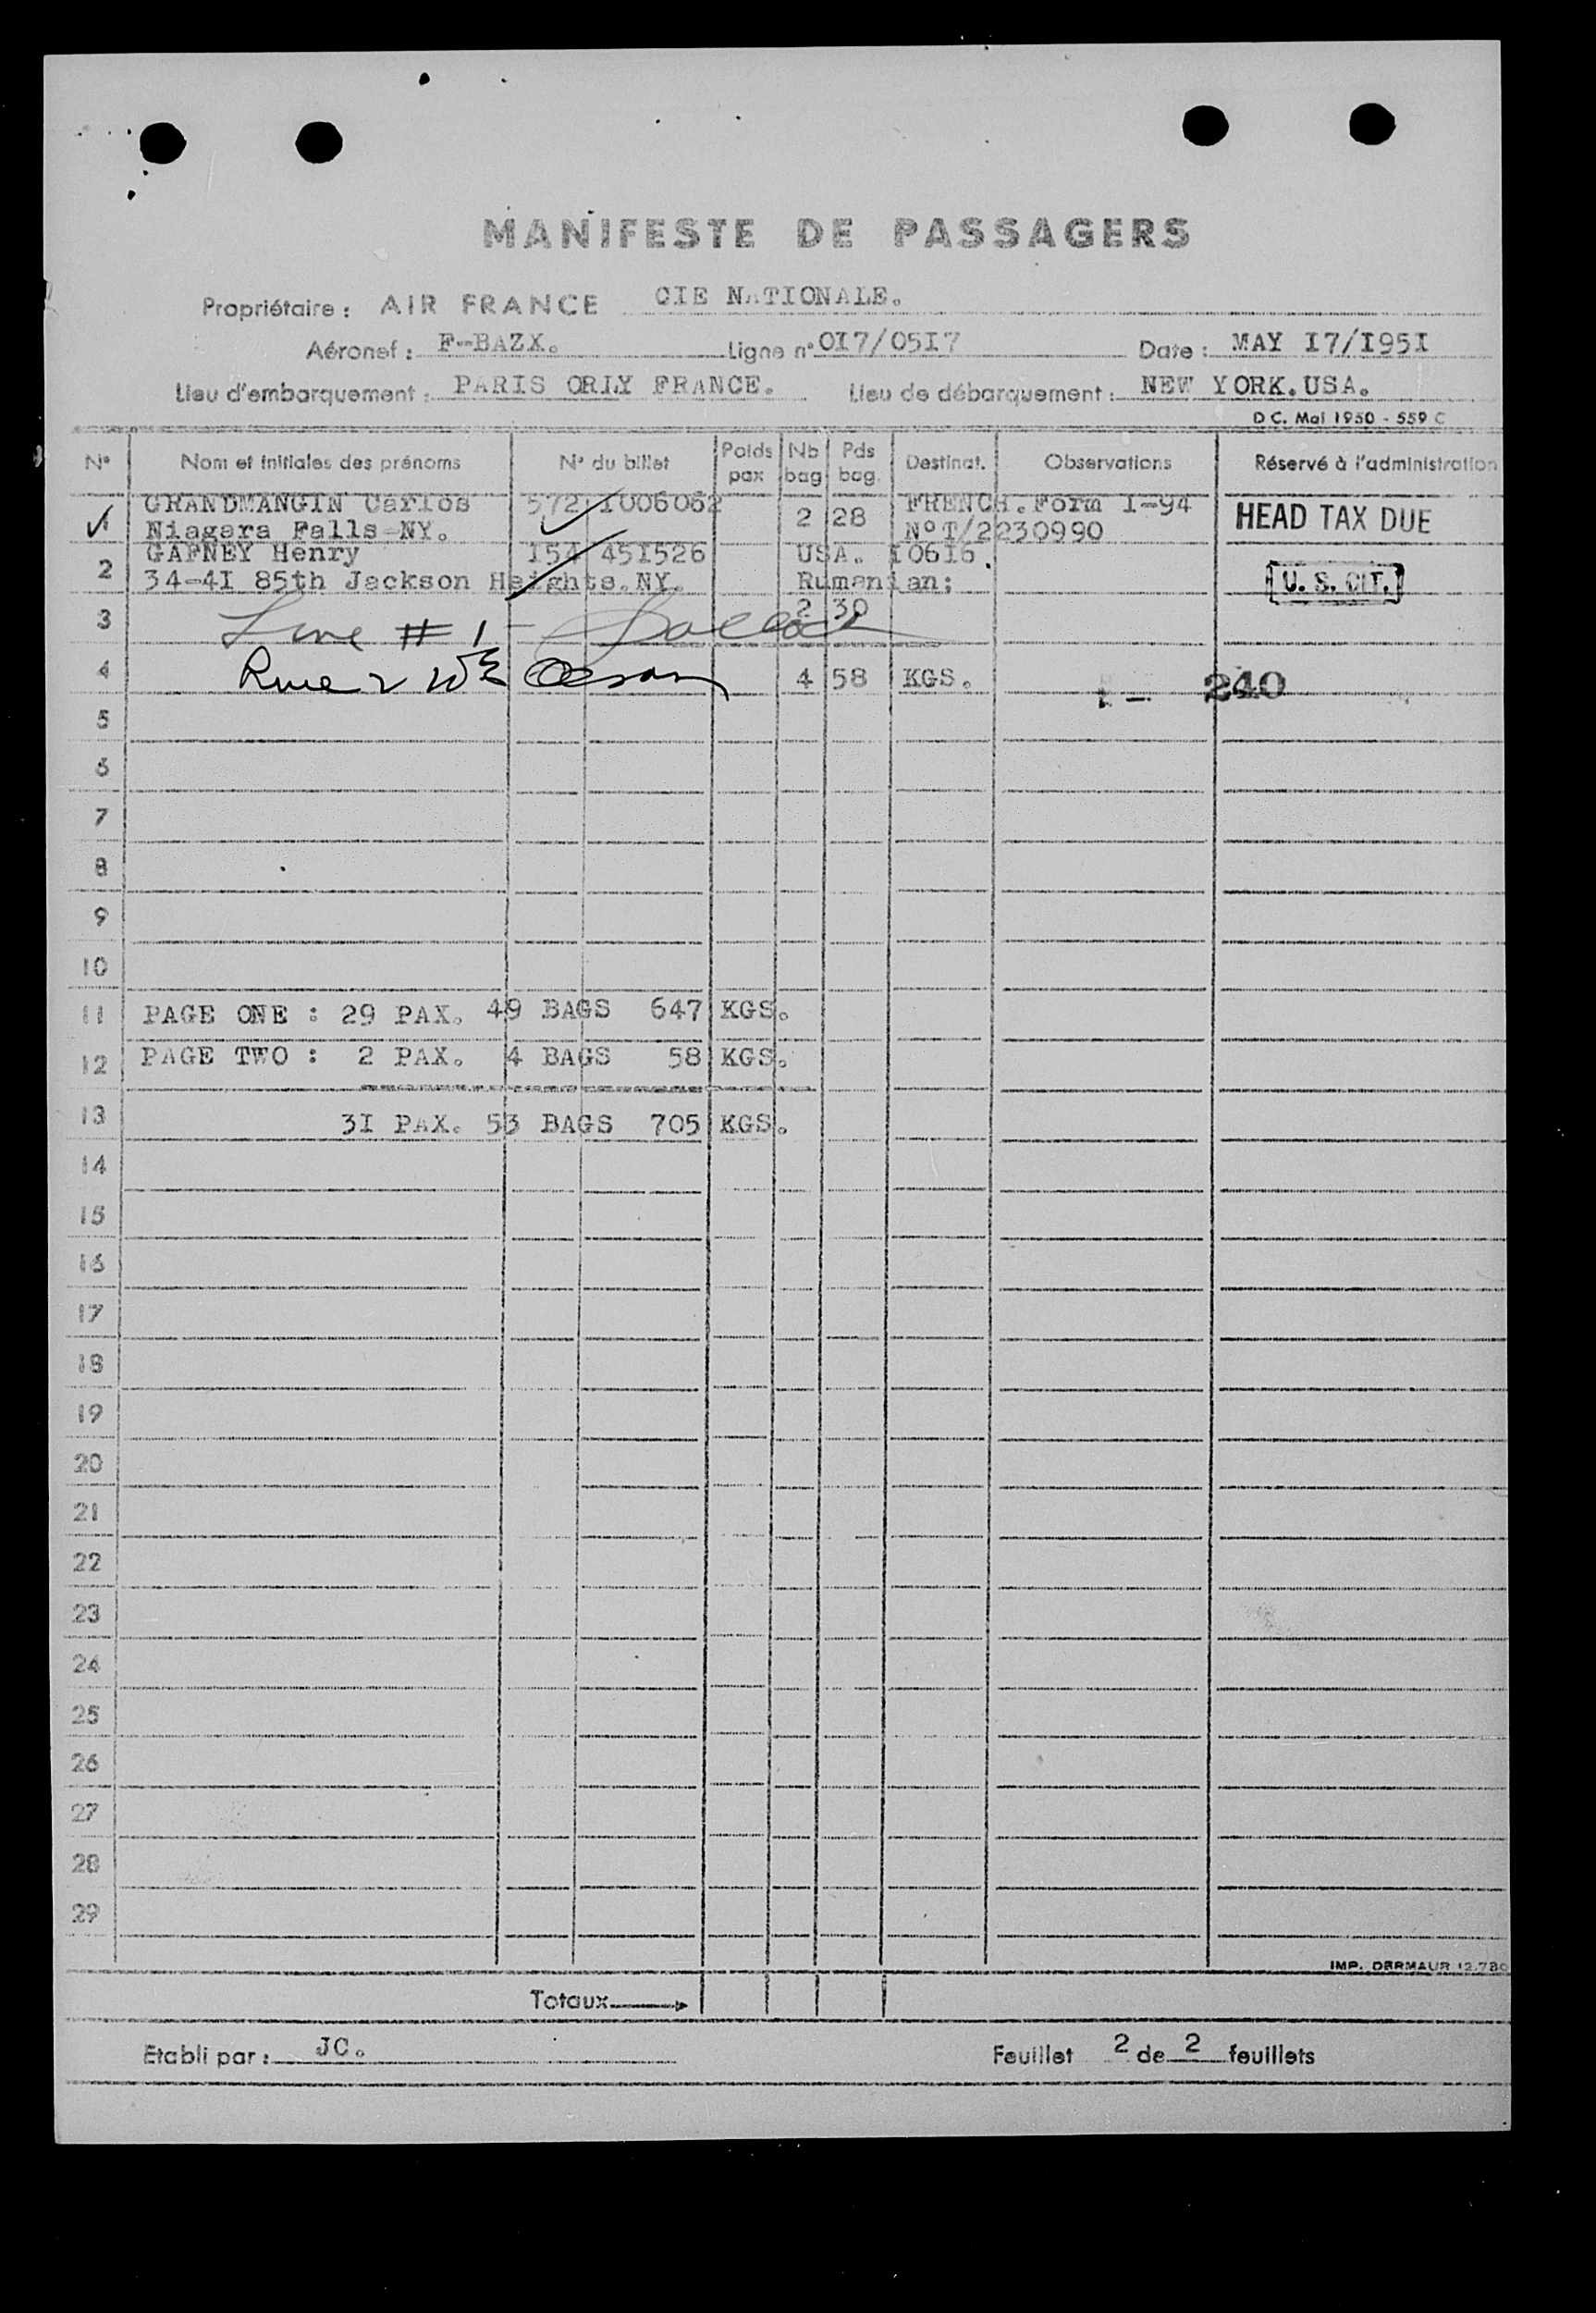 MANIFESTE DE PASSAGERS
Propriétaire : AIR FRANCE CIE NATIONALE.
Aéronef : F-BAZX. Ligne n° OI7/O5I7 Date : MAY I7/I95I
Lieu d'embarquement : PARIS ORLY FRANCE. Lieu de débarquement : NEW YORK.USA.
D C. Mai 1950 - 559 C
N° Nom et initiales des prénoms N° du billet Poids pax Nb bag Pds bag. Destinat. Observations Réservé à l'administration
1 GRANDMANGIN Carlos 572 I006062 2 28 FRENCH.Form I-94 HEAD TAX DUE
Niagara Falls-NY. N°T/2230990
2 GAFNEY Henry I54 45I526 USA. I06I6.
34-4I 85th Jackson Heights.NY. Rumanian; U. S. CIT.
3 Line # 1 - 2 30
4 4 58 KGS. 240
5
6
7
8
9
10
11 PAGE ONE : 29 PAX. 49 BAGS 647 KGS.
12 PAGE TWO : 2 PAX. 4 BAGS 58 KGS.
13 3I PAX. 53 BAGS 705 KGS.
14
15
16
17
18
19
20
21
22
23
24
25
26
27
28
29
IMP. DERMAUR
Totaux
Etabli par : JC. Feuillet 2 de 2 feuillets